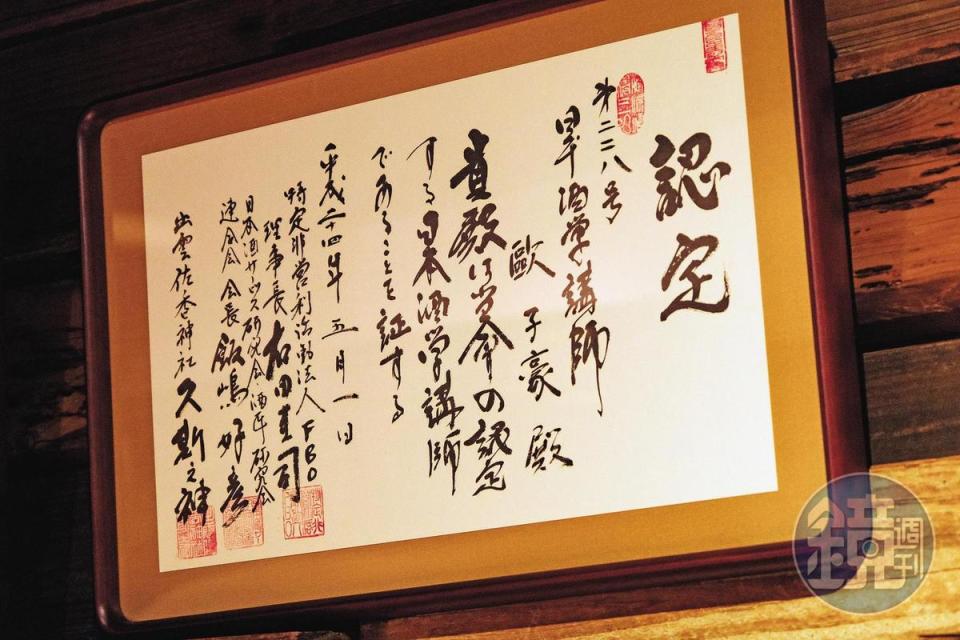 認定
第二二八号
日本酒学講師
歐 子豪 殿
貴殿は当会の認定
する日本酒学講師
であることを証する
平成二十四年 五月一日
特定非営利活動法人 FBO
理事長 右田圭司
日本酒サービス研究会・酒匠研究会
連合会 会長 飯嶋好彦
出雲佐香神社 久斯之神
鏡週刊